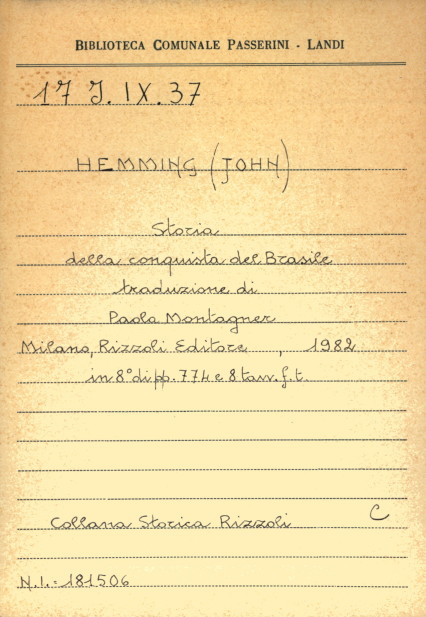 BIBLIOTECA COMUNALE PASSERINI - LANDI
17 J. IX. 37
HEMMING (JOHN)
Storia
della conquista del Brasile
traduzione di
Paola Montagner
Milano, Rizzoli Editore, 1982
in 8° di pp. 774 e 8 tavv. f. t.
Collana Storica Rizzoli C
N.I. = 181506